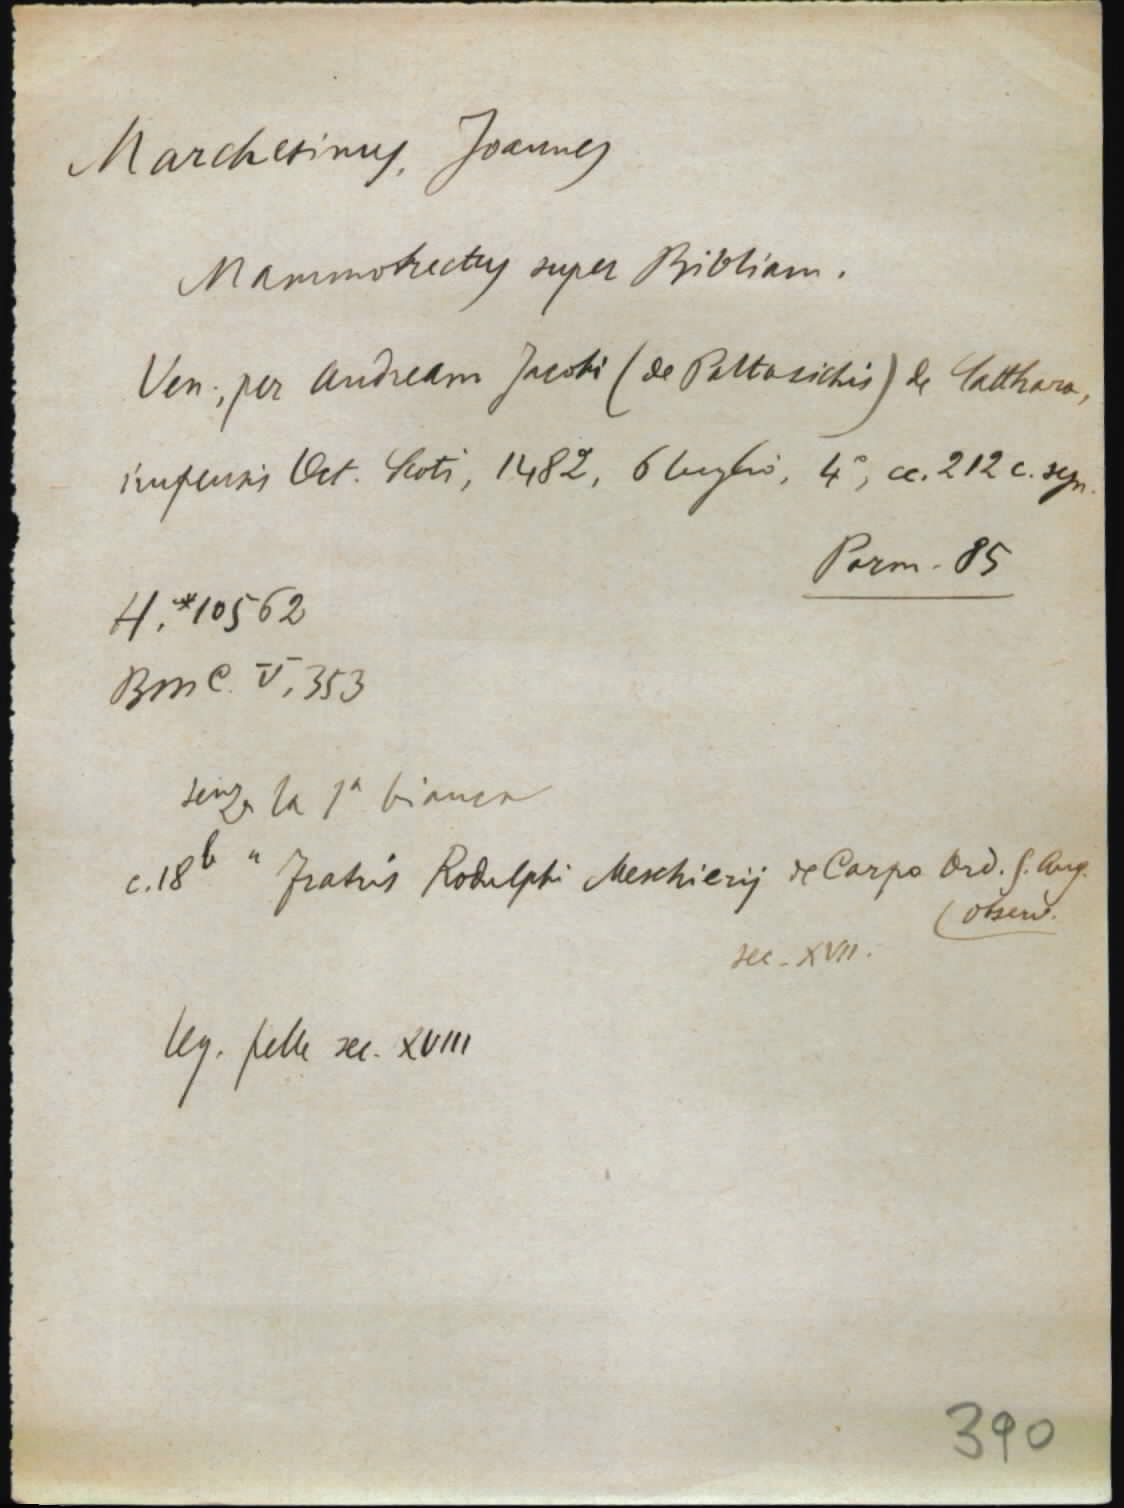 Marchesinus, Joannes
Mammotrectus super Bibliam.
Ven., per Andream Jacobi (de Paltasichis) de Catthara,
impensis Oct. Scoti, 1482, 6 luglio, 4°, cc. 212 c. segn.
Parm. 85
H. *10562
BMC. V, 353
senza la 1ª bianca
c. 18b " Fratris Rodulphi Meschierij de Carpo Ord. S. Aug.
(observ.
sec. XVII.
Leg. pelle sec. XVIII
390